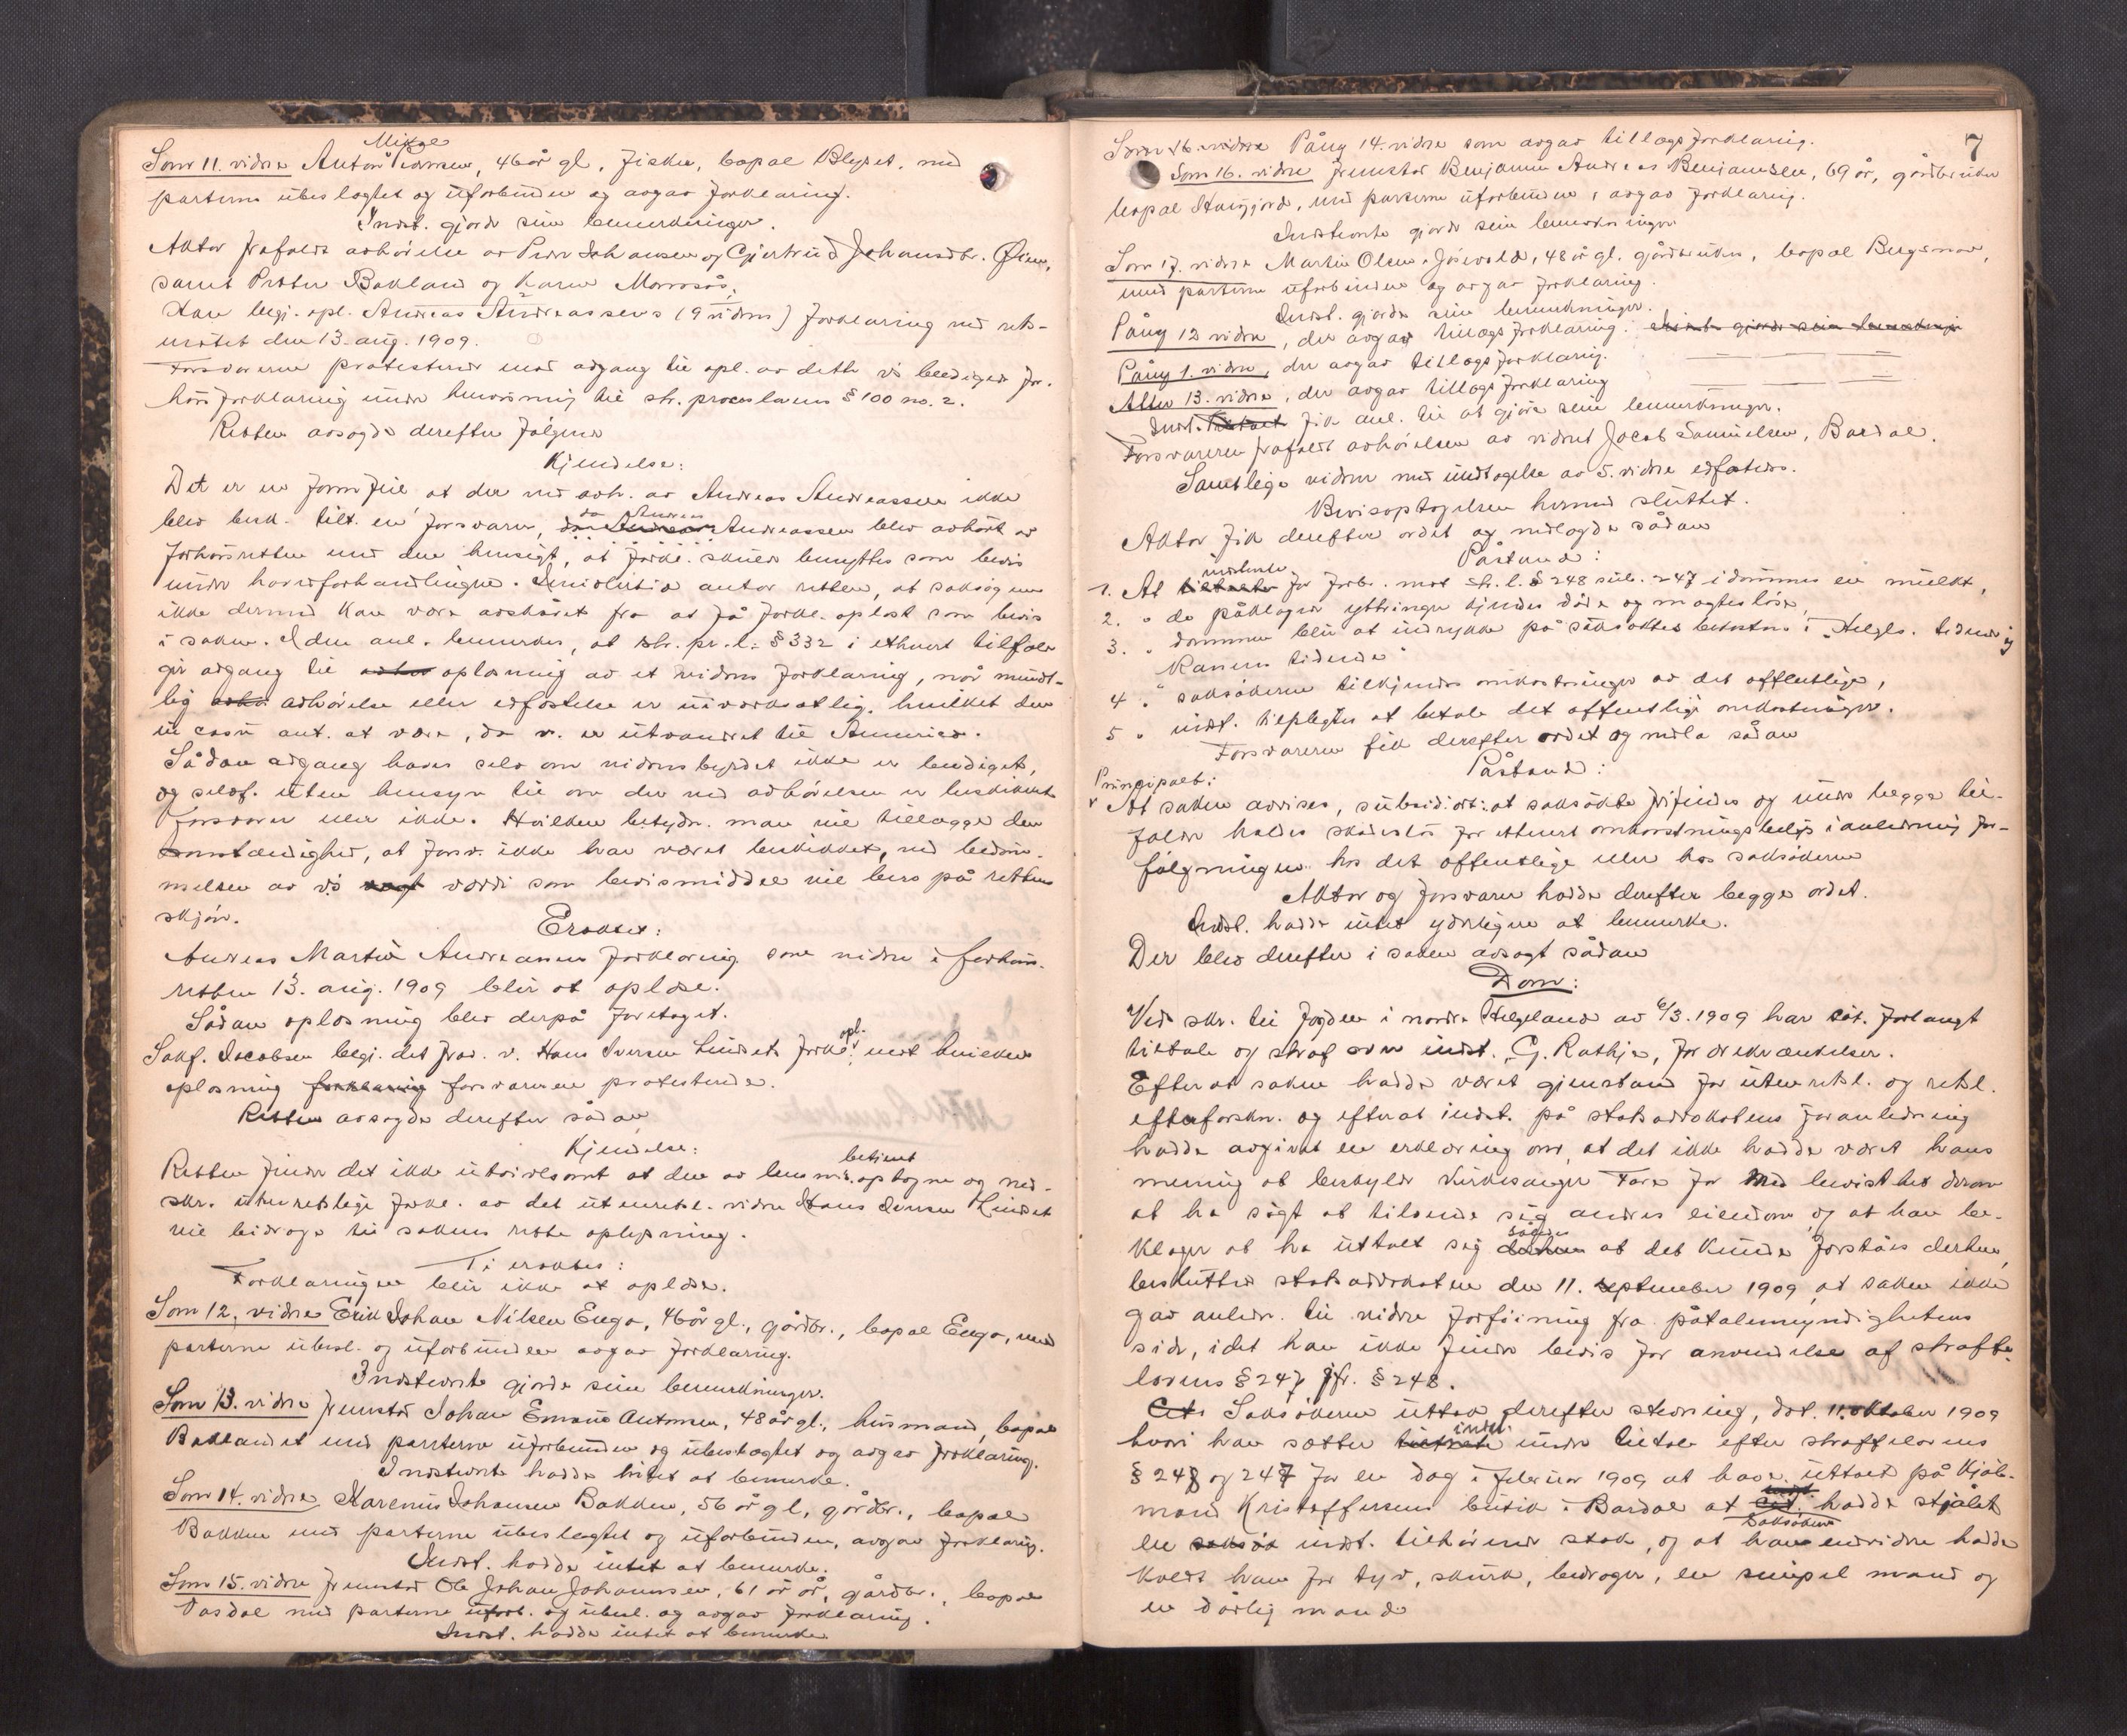 Mikal
Som 11. vidne Anton Pedersen, 46 år gl, fisker, bopæl Blexet, med
parterne ubeslægtet og uforbunden og avgav forklaring.
Indst. gjorde sine bemerkninger.
Aktor frafaldt avhörelse av Peder Johansen og Gjertrud Johansdtr. Öien,
samt Petter Bakland og Karen Monssås.
Han begj. opl. Andreas Andreassens (9 vidnes) forklaring ved ret-
møtet den 13. aug. 1909.
Forsvareren protesterede mod adgang til opl. av dette v's beedigede for-
hörsforklaring under henvisning til str. proceslovens § 100 no. 2.
Retten avsogde derefter følgende
Kjendelse:
Det er en formfeil at der ved avh. av Andreas Andreassen ikke
blev besk. tilt. en forsvarer, da Andreas Andreassen blev avhört av
forhörsretten med den hensigt, at forkl. skulde benyttes som bevis
under hovedforhandlingen. Imidlertid antar retten, at saksøgeren
ikke dermed kan være avskåret fra at få forkl. oplæst som bevis
i saken. I den anl. bemerkes, at str. pr. l. § 332 i ethvert tilfælde
gir adgang til oplæsning av et vidnes forklaring, når mundt-
lig avhörelse eller edfæstelse er uiværksætlig, hvilket den
in casu ant. at være, da v. er utvandret til Amerika.
Sådan adgang haves selv om vidnesbyrdet ikke er beediget,
og selvf. uten hensyn til om der ved avhörelsen er beskikket
forsvarer eller ikke. Hvilken betydn. man vil tillægge den
omstændighed, at forsv. ikke har været beskikket, ved bedöm-
melsen av v's værdi som bevismiddel vil bero på rettens
skjön.
Eragtes:
Andreas Martin Andreassens forklaring som vidne i forhörs-
retten 13. aug. 1909 blir at oplæse.
Sådan oplæsning blev derpå foretaget.
Sakf. Jacobsen begj. det frav. v. Hans Iversen Lindsets forkl. opl. mot hvilken
oplæsning forklaring forsvareren protesterede.
Retten avsogde derefter sådan
Kjendelse:
Retten finder det ikke utvivlsomt at den av lensm. betjent optagne og ned-
skr. utenretslige forkl. av det utenretsl. vidne Hans Iversen Lindset
vil bidrage til sakens rette oplysning.
Ti eragtes:
Forklaringen blir ikke at oplæse.
Som 12. vidne Erik Johan Nilsen Enga, 46 år gl., gårdbr., bopæl Enga, med
parterne ubesl. og uforbunden avgav forklaring.
Indstevnte gjorde sine bemerkninger.
Som 13. vidne fremstod Johan Emanuel Antonsen, 48 år gl., husmand, bopæl
Baklandet med parterne uforbunden og ubeslægtet og avgav forklaring.
Indstevnte hadde intet at bemerke.
Som 14. vidne Karenius Johansen Bakken, 56 år gl, gårdbr., bopæl
Bakken med parterne ubeslægtet og uforbunden, avgav forklaring.
Indst. hadde intet at bemerke.
Som 15. vidne fremstod Ole Johan Johannsen, 61 år, gårdbr., bopæl
Vasdal med parterne uforb. og ubesl. og avgav forklaring.
Indst. hadde intet at bemerke.
7
Som 16. vidne Påny 14. vidne som avgav tillægsforklaring.
Som 16. vidne fremstod Benjamin Andreas Benjaminsen, 69 år, gårdbruker
bopæl, med parterne uforbunden, avgav forklaring.
Indstevnte gjorde sine bemerkninger
Som 17. vidne Martin Olsen, 48 år gl. gårdbruker, bopæl Bergsmo,
med parterne uforbunden og avgav forklaring.
Indst. gjorde sine bemerkninger.
Påny 12 vidne, der avgav tillægsforklaring. Indst. gjorde sine bemerkninger
Påny 1. vidne, der avgav tillægsforklaring.
Atter 13. vidne, der avgav tillægsforklaring
Indst. fik anl. til at gjöre sine bemerkninger.
Forsvareren frafaldt avhörelsen av vidnet Jacob Samuelsen, Bardal.
Samtlige vidner med undtagelse av 5. vidne edfæstedes.
Bevisoptagelsen hermed sluttet.
Aktor fik derefter ordet og nedlagde sådan
Påstand:
indstevnte
1. At tiltalte for forbr. mot str. l. § 248 sub. 247 idømmes en mulkt,
2. " de påklagede yttringer kjendes döde og magteslöse,
3. " dommen blir at indrykke på saksöktes bekostn. i "Helgls. tidende" og
"Ranens tidende"
4. " saksökeren tilkjendes omkostninger av det offentlige,
5 " indst. tilpligtes at betale det offentlige omkostninger.
Forsvareren fik derefter ordet og nedla sådan
Påstand:
Principalt:
At saken avvises, subsidiært: at saksökte frifindes og under begge til-
fælde holdes skadeslös for ethvert omkostningsbelöp i anledning for-
fölgningen hos det offentlige eller hos saksökeren
Aktor og forsvarer hadde derefter begge ordet.
Indst. hadde intet yderligere at bemerke.
Der blev derefter i saken avsagt sådan
Dom:
Ved skr. til fogden i nordre Helgeland av 6/3. 1909 har cit. forlangt
tiltale og straf over indst. G. Rathje, for ærekrænkelser.
Efterat saken hadde været gjenstand for utenretsl. og retsl.
efterforskn. og efterat indst. på statsadvokatens foranledning
hadde avgivet en erklæring om, at det ikke hadde været hans
mening at beskylde kirkesanger Fore for med bevisthet derom
at ha sögt at tilvende sig andres eiendom, og at han be-
klager at ha uttalt sig således at det kunde forståes derhen,
besluttet statsadvokaten den 11. september 1909, at saken ikke
gav anledn. til videre forföining fra påtalemyndighetens
side, idet han ikke finder bevis for anvendelse af straffe-
lovens § 247 jfr. § 248.
Cit. Saksökeren uttok derefter stevning, dat. 11. oktober 1909
hvori han sætter indst. under tiltale efter straffelovens
§ 248 og 247 for en dag i februar 1909 at have uttalt på kjöb-
mand Kristoffersens butik i Bardal at cit. hadde stjålet
saksökeren
en indst. tilhörende stok, og at han endvidere hadde
kaldt ham for tyv, skurk, bedrager, en simpel mand og
en dårlig mand